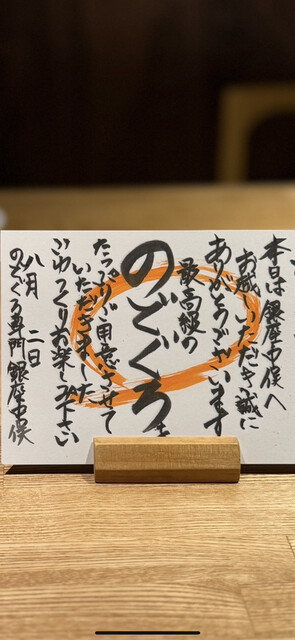 本日は銀座中俣へ
お越しいただき誠に
ありがとうございます
最高級の
のどぐろを
たっぷりご用意させて
いただきました
ごゆっくりお楽しみ下さい
八月 二日
のどぐろ専門 銀座中俣